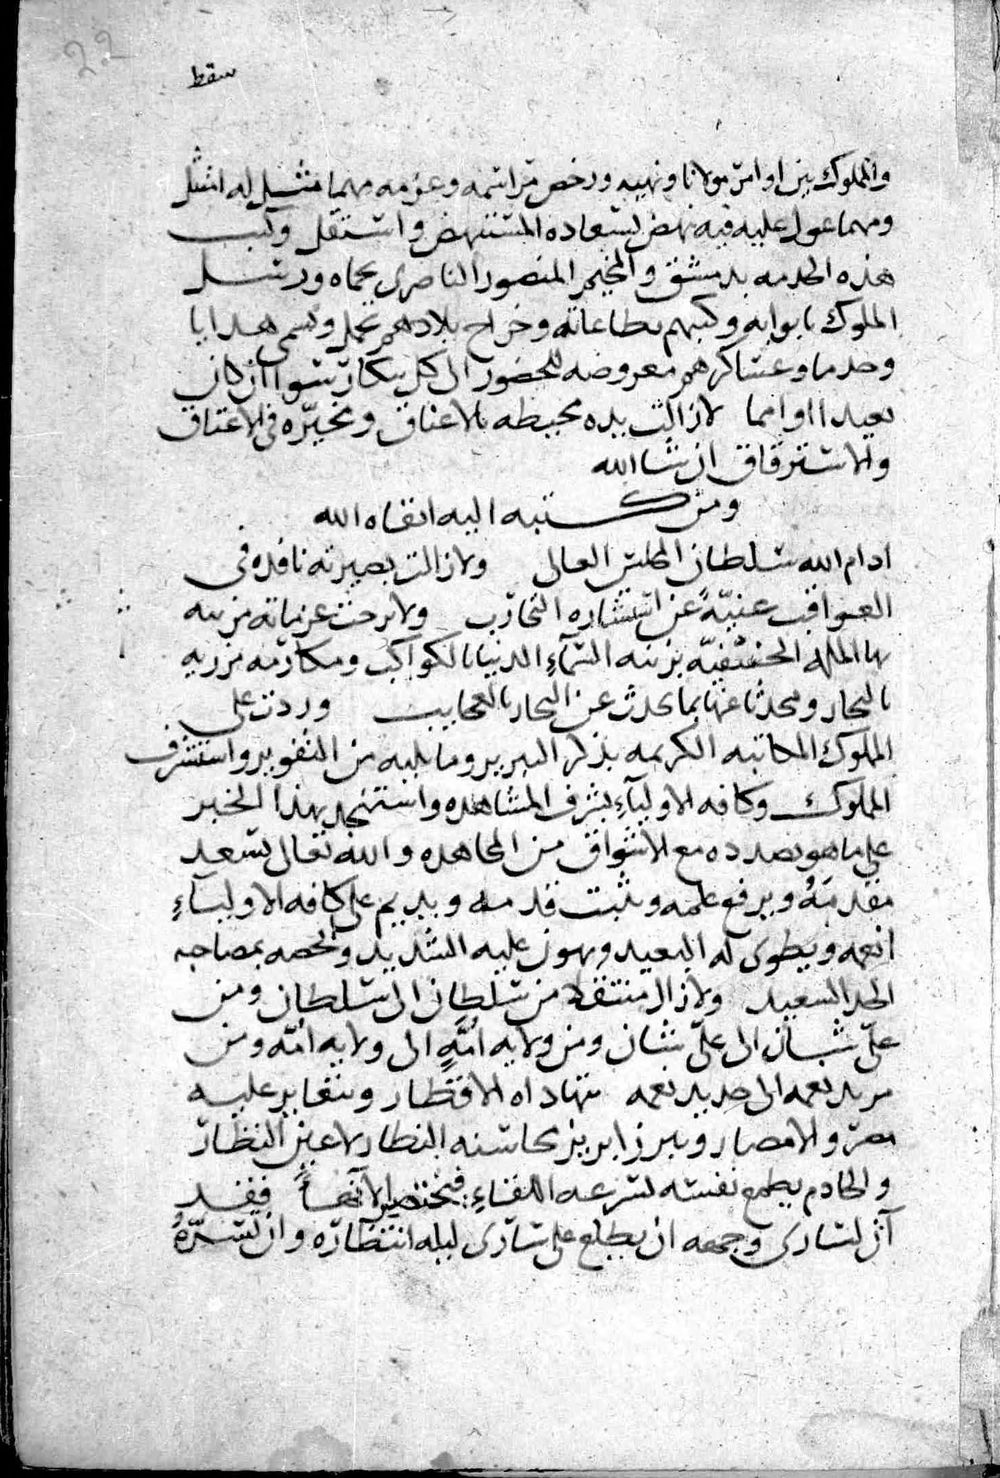 22
سقط
والمملوك بين اوامر مولانا ونهيه ورخص مراسمه وعزمه مهما مثل له امتثل
ومهما عول عليه فيه نهض بسعاده المستنهض واستقل وكتب
هذه الخدمه بدمشق والمخيم المنصور الناصري بحماه ورسل
الملوك بابوابه وكتبهم بطاعاته وخراج بلادهم يحمل ويسمى هدايا
وخدما وعساكرهم معروضه للحضور الى كل بيكار سوا ان كان
بعيدا او امما لازالت يده محيطه بالاعناق ومخيره في الاعتاق
والاسترقاق ان شا الله
ومن كتبه اليه ابقاه الله
ادام الله سلطان المجلس العالي ولازالت بصيرته نافذه في
العواقب غنيّة عن استشاره التجارب ولا برحت عزماته مزينه
بها المله الحنيفيّه بزينه السمآء الدنيا بالكواكب ومكارمه مزريه
بالبحار ومحدثا عنها بما يحدث عن البحار بالعجايب وردت على
المملوك المكاتبه الكريمه بذكر التبريز وما يليه من التفويز واستشرف
المملوك وكافه الاوليآء بشرف المشاهده واستنجد بهذا الخبر
على ما هو بصدده مع الاشواق من المجاهده والله تعالى يسعد
مقدمَهُ ويرفع علمه ويثبت قدمه ويديم على كافه الاوليآء
انعمه ويطوى له البعيد ويهون عليه الشديد ويخصه بمصاحبه
الجد السعيد ولازال منتقلا من سلطان الى سلطان ومن
عليّ شان الى عليّ شان ومن ولايه امّةٍ الى ولايه امّه ومن
مزيد نعمه الى جديد نعمه تتهاداه الاقطار ويتغاير عليه
مصر والامصار ويبرز ابريز محاسنه النظار لاعين النظار
والخادم يطمع نفسه بسرعه اللقاء فيختصر لا فقد
آن لسارى وجهه ان يطلع على سارى ليله انتظاره وان لسرّه